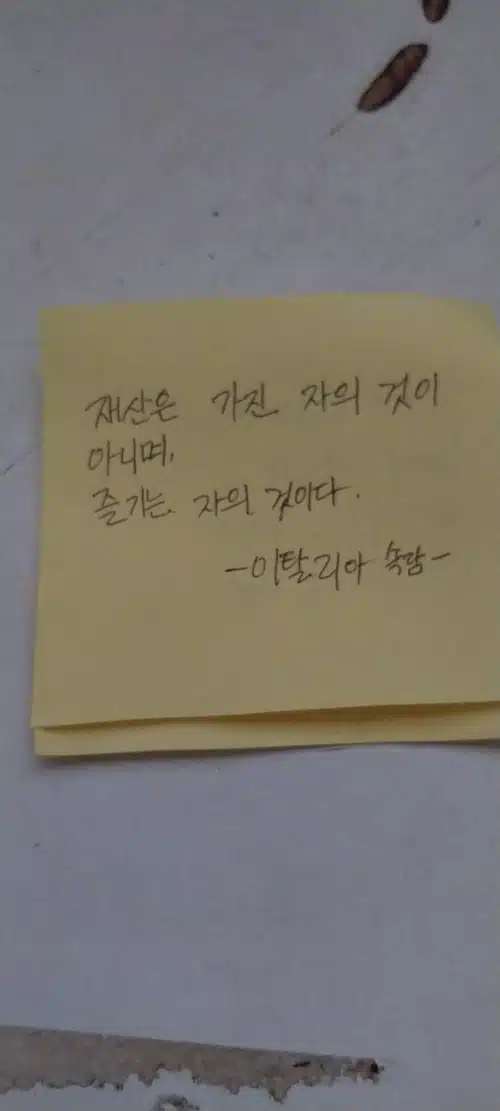 재산은 가진 자의 것이
아니며,
즐기는 자의 것이다.
-이탈리아 속담-